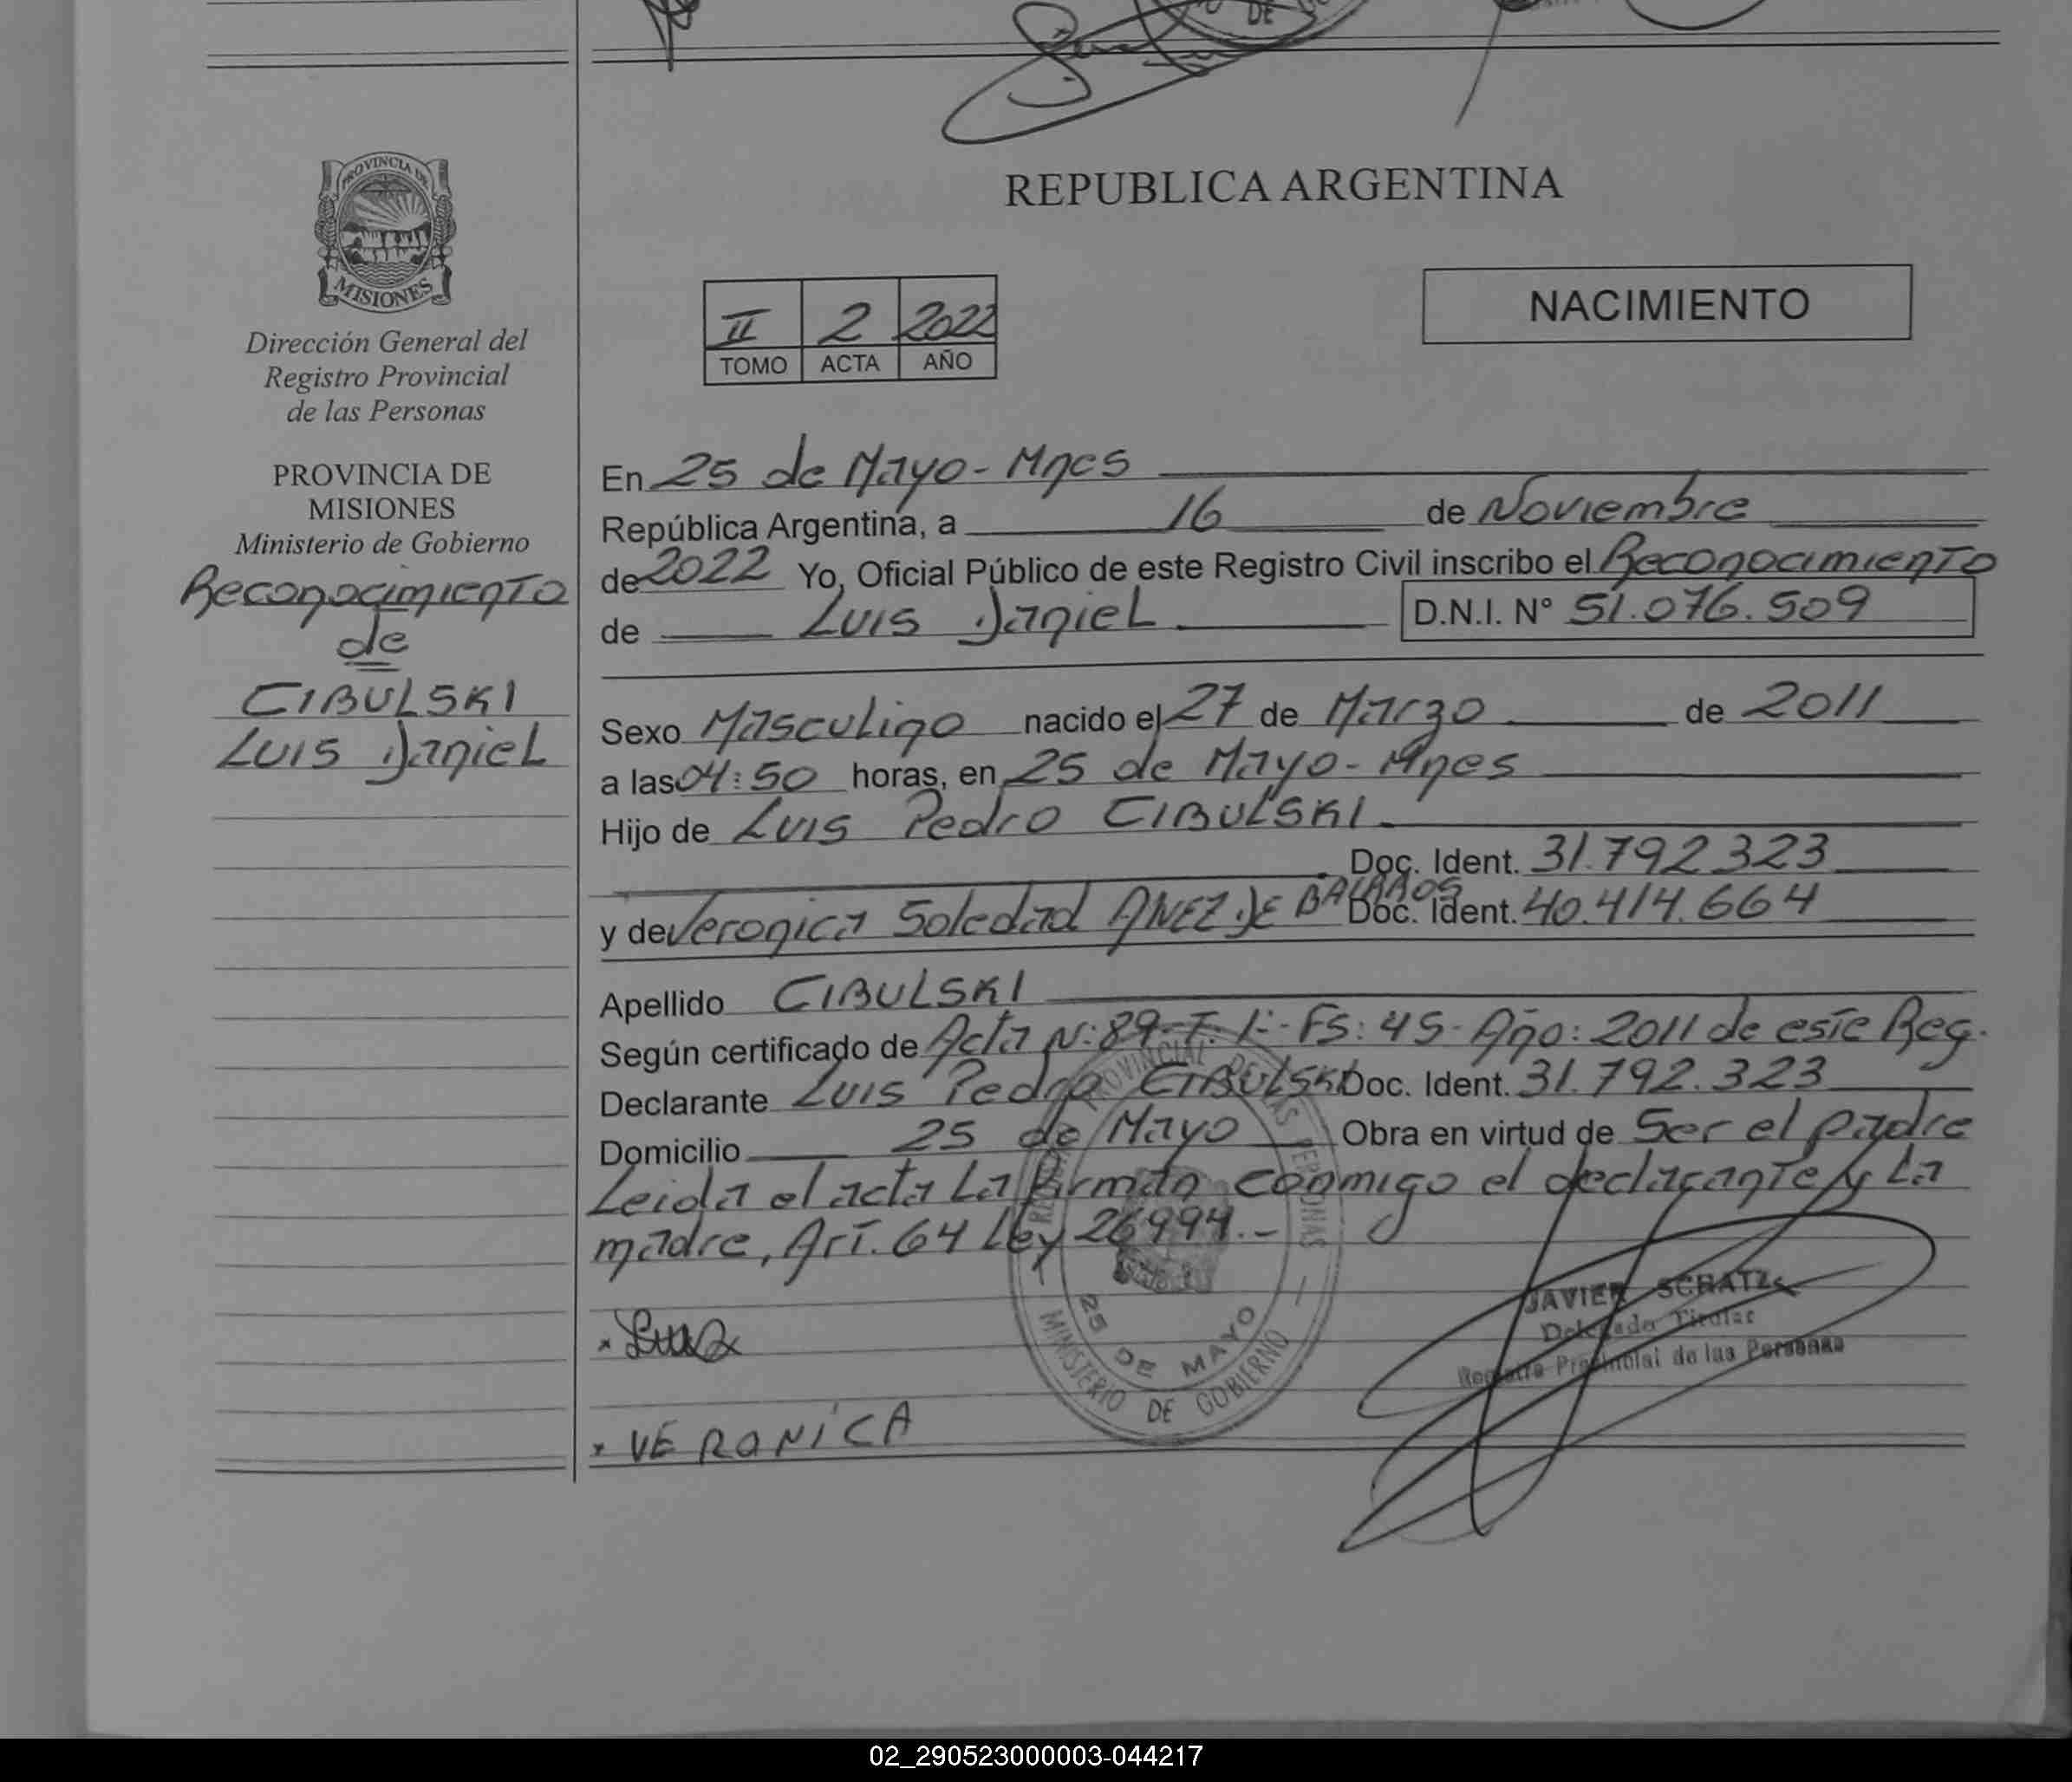 REPUBLICA ARGENTINA
PROVINCIA DE
MISIONES
Dirección General del
Registro Provincial
de las Personas
PROVINCIA DE
MISIONES
Ministerio de Gobierno
Reconocimiento
de
CIBULSKI
Luis Daniel
II 2 2022
TOMO ACTA AÑO
NACIMIENTO
En 25 de Mayo - Mnes
República Argentina, a 16 de Noviembre
de 2022 Yo, Oficial Público de este Registro Civil inscribo el Reconocimiento
de Luis Daniel D.N.I. N° 51.076.509
Sexo Masculino nacido el 27 de Marzo de 2011
a las 04:50 horas, en 25 de Mayo - Mnes
Hijo de Luis Pedro CIBULSKI
Doc. Ident. 31.792.323
y de Veronica Soledad ANEZ DE BAIRROS Doc. Ident. 40.414.664
Apellido CIBULSKI
Según certificado de Acta N: 89 - T. I - Fs: 45 - Año: 2011 de este Reg.
Declarante Luis Pedro CIBULSKI Doc. Ident. 31.792.323
Domicilio 25 de Mayo Obra en virtud de Ser el padre
Leida el acta La firman conmigo el declarante y La
madre, Art. 64 Ley 26994.-
REGISTRO PROVINCIAL DE LAS PERSONAS
25 DE MAYO
MINISTERIO DE GOBIERNO
JAVIER SCHATZ
Delegado Titular
Registro Provincial de las Personas
x VERONICA
02_290523000003-044217